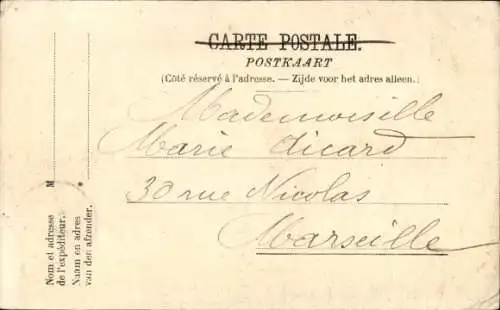 CARTE POSTALE.
POSTKAART
(Côté réservé à l'adresse. — Zijde voor het adres alleen.)
Mademoiselle
Marie Sicard
30 rue Nicolas
Marseille
M
Nom et adresse
de l'expéditeur.
Naam en adres
van den afzender.